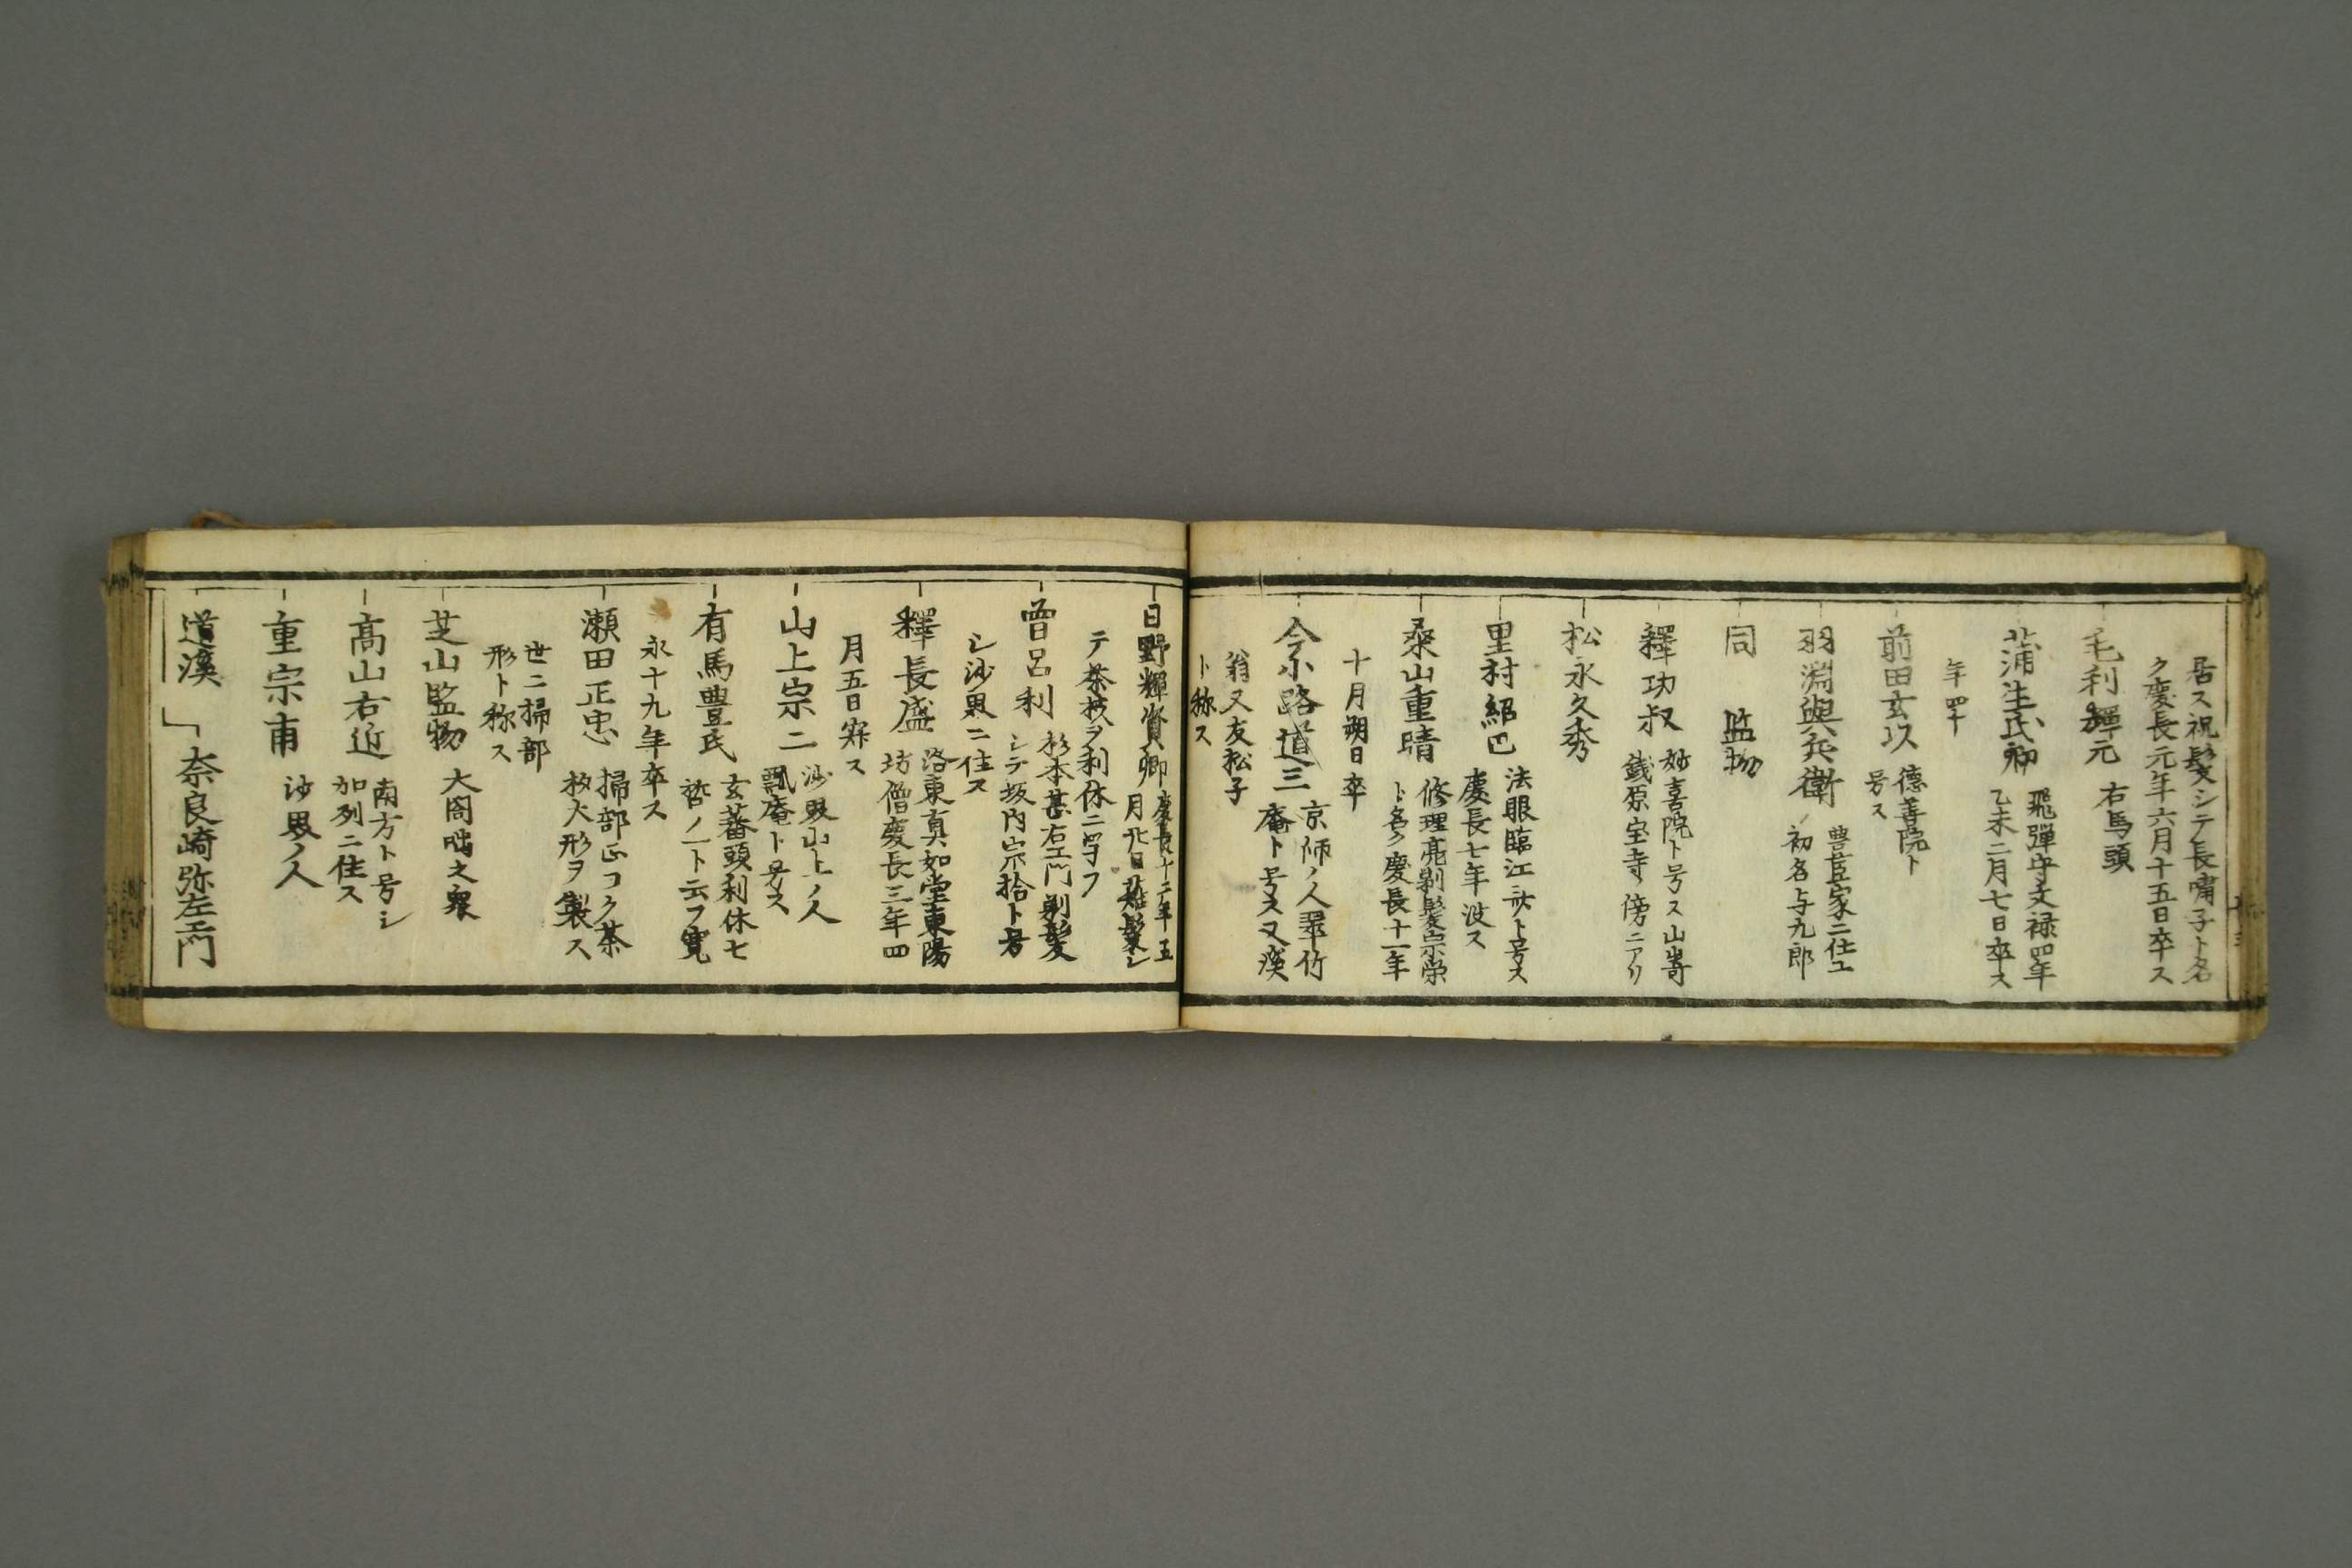 居ス祝髪シテ長嘯子ト名
ク慶長元年六月十五日卒ス
毛利輝元 右馬頭
蒲生氏郷 飛弾守文禄四年
乙未二月七日卒ス
年四十
前田玄以 德善院ト
号ス
羽淵與兵衛 豊臣家ニ仕エ
初名与九郎
同 监物
釋功叔 妙喜院ト号ス山嵜
銭原宝寺ノ傍ニアリ
松永久秀
里村紹巴 法眼臨江斎ト号ス
慶長七年没ス
桑山重晴 修理亮剃髪宗栄
ト名ク慶長十一年
十月朔日卒
今小路道三 京師ノ人翠竹
庵ト号ス又渓
翁又友松子
ト称ス
日野輝資卿 慶長十二年五
月廿日薙髪シ
テ茶技ヲ利休ニ学フ
曽呂利 杉本甚右エ門剃髪
シテ坂内宗拾ト号
シ沙界ニ住ス
釋長盛 洛東真如堂東陽
坊僧慶長三年四
月五日寂ス
山上宗二 沙界山上ノ人
瓢庵ト号ス
有馬豊氏 玄蕃頭利休七
哲ノ一ト云フ寛
永十九年卒ス
瀬田正忠 掃部正コク茶
杓大形ヲ製ス
世ニ掃部
形ト称ス
芝山監物 大閤咄之衆
髙山右近 南方ト号シ
加列ニ住ス
重宗甫 沙界ノ人
道渓 」奈良崎弥左エ門